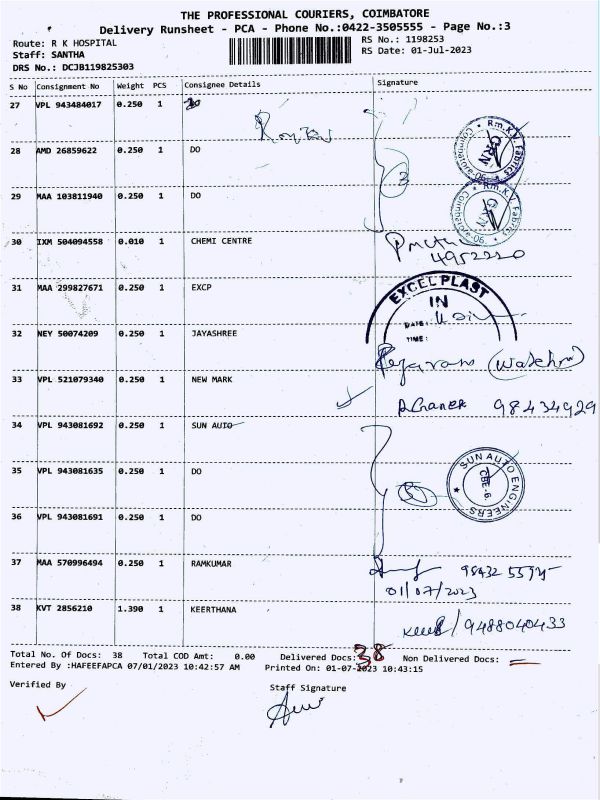 THE PROFESSIONAL COURIERS, COIMBATORE
Delivery Runsheet - PCA - Phone No.:0422-3505555 - Page No.:3
Route: R K HOSPITAL
RS No.: 1198253
Staff: SANTHA
RS Date: 01-Jul-2023
DRS No.: DCJB119825303
S No Consignment No Weight PCS Consignee Details Signature
27 VPL 943484017 0.250 1
28 AMD 26859622 0.250 1 DO
Rm.K.V. Fabrics
GRN
Coimbatore-06.
29 MAA 103811940 0.250 1 DO
Rm.K.V. Fabrics
GRN
Coimbatore-06.
30 IXM 504094558 0.010 1 CHEMI CENTRE
4952220
31 MAA 299827671 0.250 1 EXCP
EXCEL PLAST
IN
DATE:
TIME:
32 NEY 50074209 0.250 1 JAYASHREE
33 VPL 521079340 0.250 1 NEW MARK
98434929
34 VPL 943081692 0.250 1 SUN AUTO
35 VPL 943081635 0.250 1 DO
SUN AUTO ENGINEERS
CBE-6
36 VPL 943081691 0.250 1 DO
37 MAA 570996494 0.250 1 RAMKUMAR
01/07/2023
38 KVT 2856210 1.390 1 KEERTHANA
9488040433
Total No. Of Docs: 38 Total COD Amt: 0.00 Delivered Docs: 38 Non Delivered Docs:
Entered By :HAFEEFAPCA 07/01/2023 10:42:57 AM Printed On: 01-07-2023 10:43:15
Verified By
Staff Signature